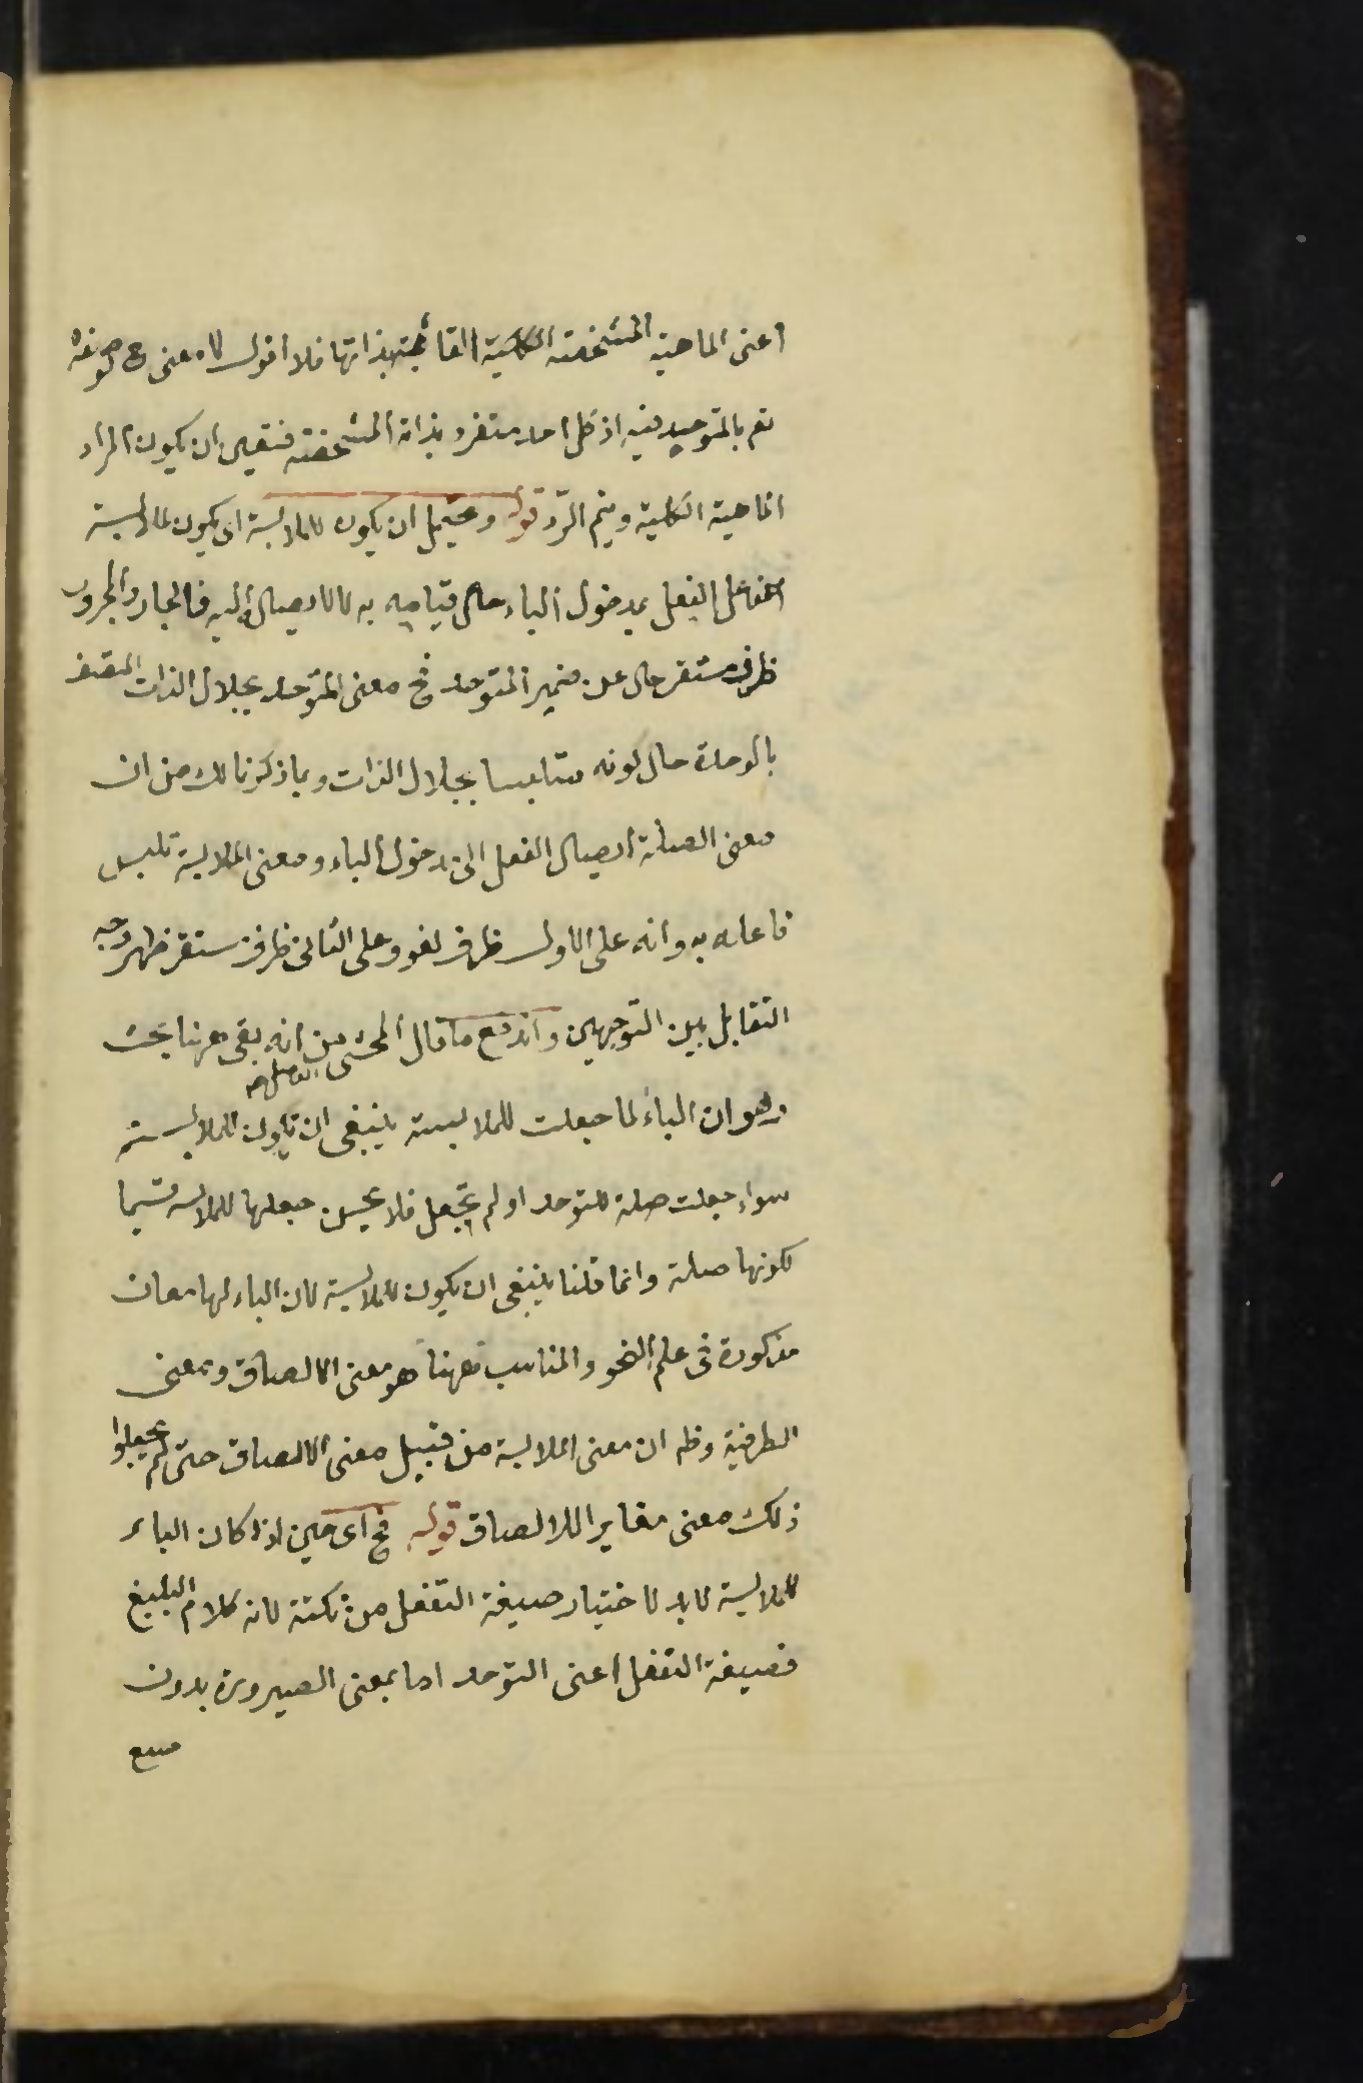 اعنى الماهية المشخصة الكلية القائمة بذاتها فلا اقول لا معنى ح لوصفه
تعم بالتوحيد فيه اذ كل احد متفرد بذاته المشخصة فتعين ان يكون المراد
الماهية الكلية ويتم الرد قوله ويحتمل ان يكون للملابسة اى يكون لملابسة
الفاعل الفعل بمدخول الباء حال قيامه به لا لايصال اليه فالجار والمجرور
ظرف مستقر حال عن ضمير المتوحد فح معنى المتوحد بجلال الذات المتصف
بالوحدة حال كونه متلبسا بجلال الذات وبما ذكرنا لك من ان
معنى الصلة ايصال الفعل الى مدخول الباء ومعنى الملابسة تلبس
فاعله به وانه على الاول ظرف لغو وعلى الثانى ظرف مستقر ظهر وجه
التقابل بين التوجيهين واندفع ما قال المحشى من انه بقى ههنا بحث
وهو ان الباء لما جعلت للملابسة ينبغى ان تكون للملابسة
سواء جعلت صلة للتوحد او لم تجعل فلا يحسن جعلها للملابسة قسيما
لكونها صلة وانما قلنا ينبغى ان يكون للملابسة لان الباء لها معان
مذكورة فى علم النحو والمناسب ههنا هو معنى الالصاق ومعنى
الظرفية وظ ان معنى الملابسة من قبيل معنى الالصاق حتى لم يجعلوا
ذلك معنى مغايرا للالصاق قوله فح اى حين اذ كان الباء
للملابسة لابد لاختيار صيغة التفعل من نكتة لانه كلام البليغ
فصيغة التفعل اعنى التوحد اما بمعنى الصيرورة بدون
صنع